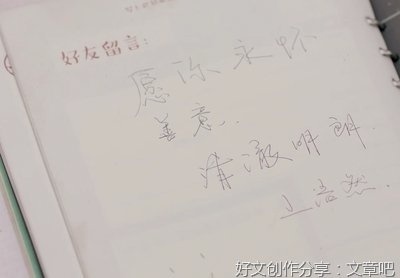 好友留言:
愿你永怀
善意.
清澈明朗.
王浩然.
好文创作分享：文章吧